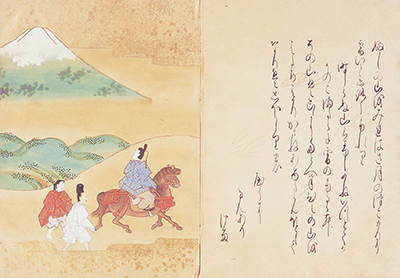 ふしの山をみれはさ月のつこもりに
雪いとしろうふれり
時しらぬ山はふしのねいつとてか
かのこまたらに雪のふるらむ
その山はこゝにたとへはひえの山を
はたちはかりかさねあけたらんほと
してなりはしほしりの
やうに
なんあり
ける